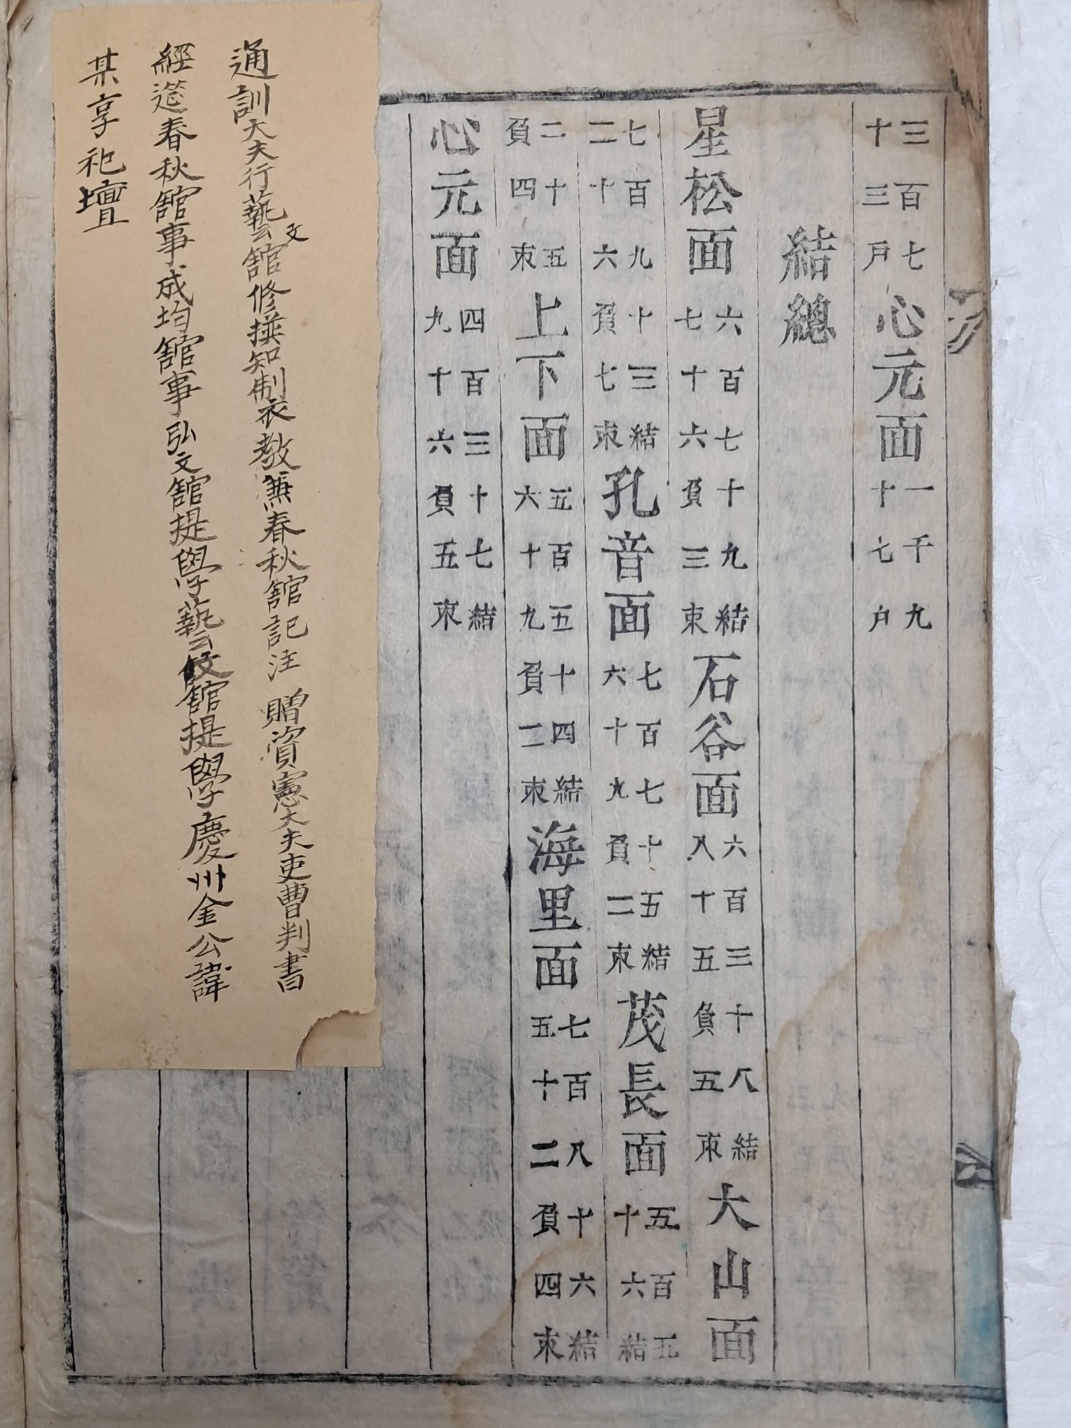 三百七十三戶心元面一千九十七戶
結總
星松面六百七十九結七十六負三束石谷面六百三十八結八十五負五束大山面
七百九十三結二十六負七束孔音面七百七十五結六十九負二束茂長面五百五十六結
二十五負四束上下面五百五十四結六十九負二束海里面七百八十六結五十二負四束
心元面四百三十七結九十六負五束
通訓大夫行藝文館修撰知製教兼春秋館記注 贈資憲大夫吏曹判書
經筵春秋館事成均館事弘文館提學藝文館提學慶州金公諱
某享祀壇